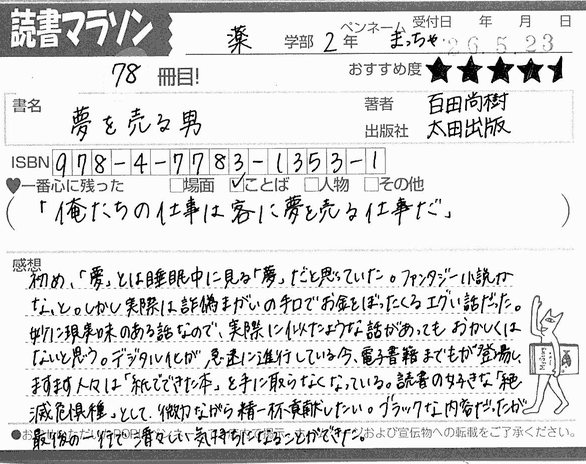 読書マラソン
薬 学部 2年 ペンネーム まっちゃ 受付日 年 月 日
26.5.23
78 冊目! おすすめ度 ★★★★
書名 夢を売る男
著者 百田尚樹
出版社 太田出版
ISBN 978-4-7783-1353-1
♥一番心に残った □場面 ☑ことば □人物 □その他
(「俺たちの仕事は客に夢を売る仕事だ」)
感想
初め、「夢」とは睡眠中に見る「夢」だと思っていた。ファンタジー小説か
な、と。しかし実際は詐偽まがいの手口でお金をぼったくるエグい話だった。
妙に現実味のある話なので、実際に似たような話があっても おかしくは
ないと思う。デジタル化が 急速に進行している今、電子書籍までもが登場し、
ますます人々は「紙でできた本」を手に取らなくなっている。読書の好きな「絶
滅危惧種」として、微力ながら精一杯貢献したい。ブラックな内容だったが
最後の一行で 清々しい気持ちになることができた。
および宣伝物への転載をご了承ください。